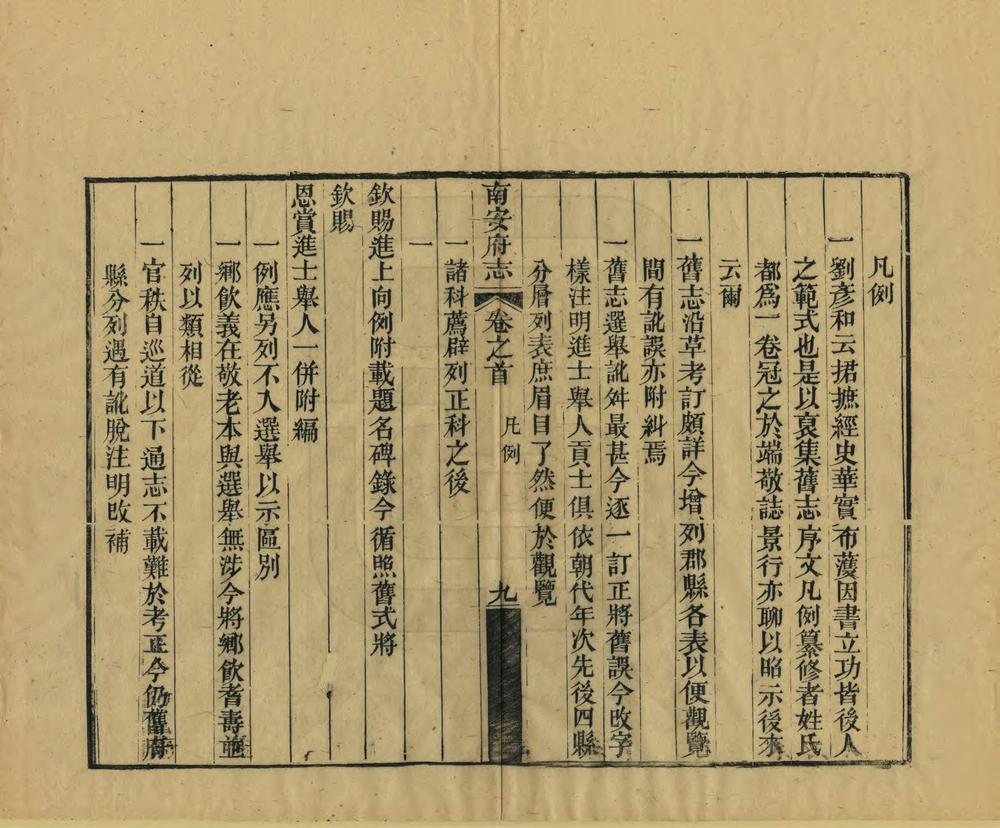 凡例
一劉彥和云捃摭經史華實布濩因書立功皆後人
之範式也是以裒集舊志序文凡例纂修者姓氏
都爲一卷冠之於端敬誌景行亦聊以昭示後來
云爾
一舊志沿草考訂頗詳今增列郡縣各表以便觀覽
間有訛誤亦附糾焉
一舊志選舉訛舛最甚今逐一訂正將舊誤今改字
樣注明進士舉人貢士俱依朝代年次先後四縣
分層列表庶眉目了然便於觀覽
南安府志 卷之首 凡例 九
一諸科薦辟列正科之後
一
欽賜進士向例附載題名碑錄今循照舊式將
欽賜
恩賞進士舉人一併附編
一例應另列不入選舉以示區別
一鄉飲義在敬老本與選舉無涉今將鄉飲耆壽並
列以類相從
一官秩自巡道以下通志不載難於考正今仍舊府
縣分列遇有訛脫注明改補